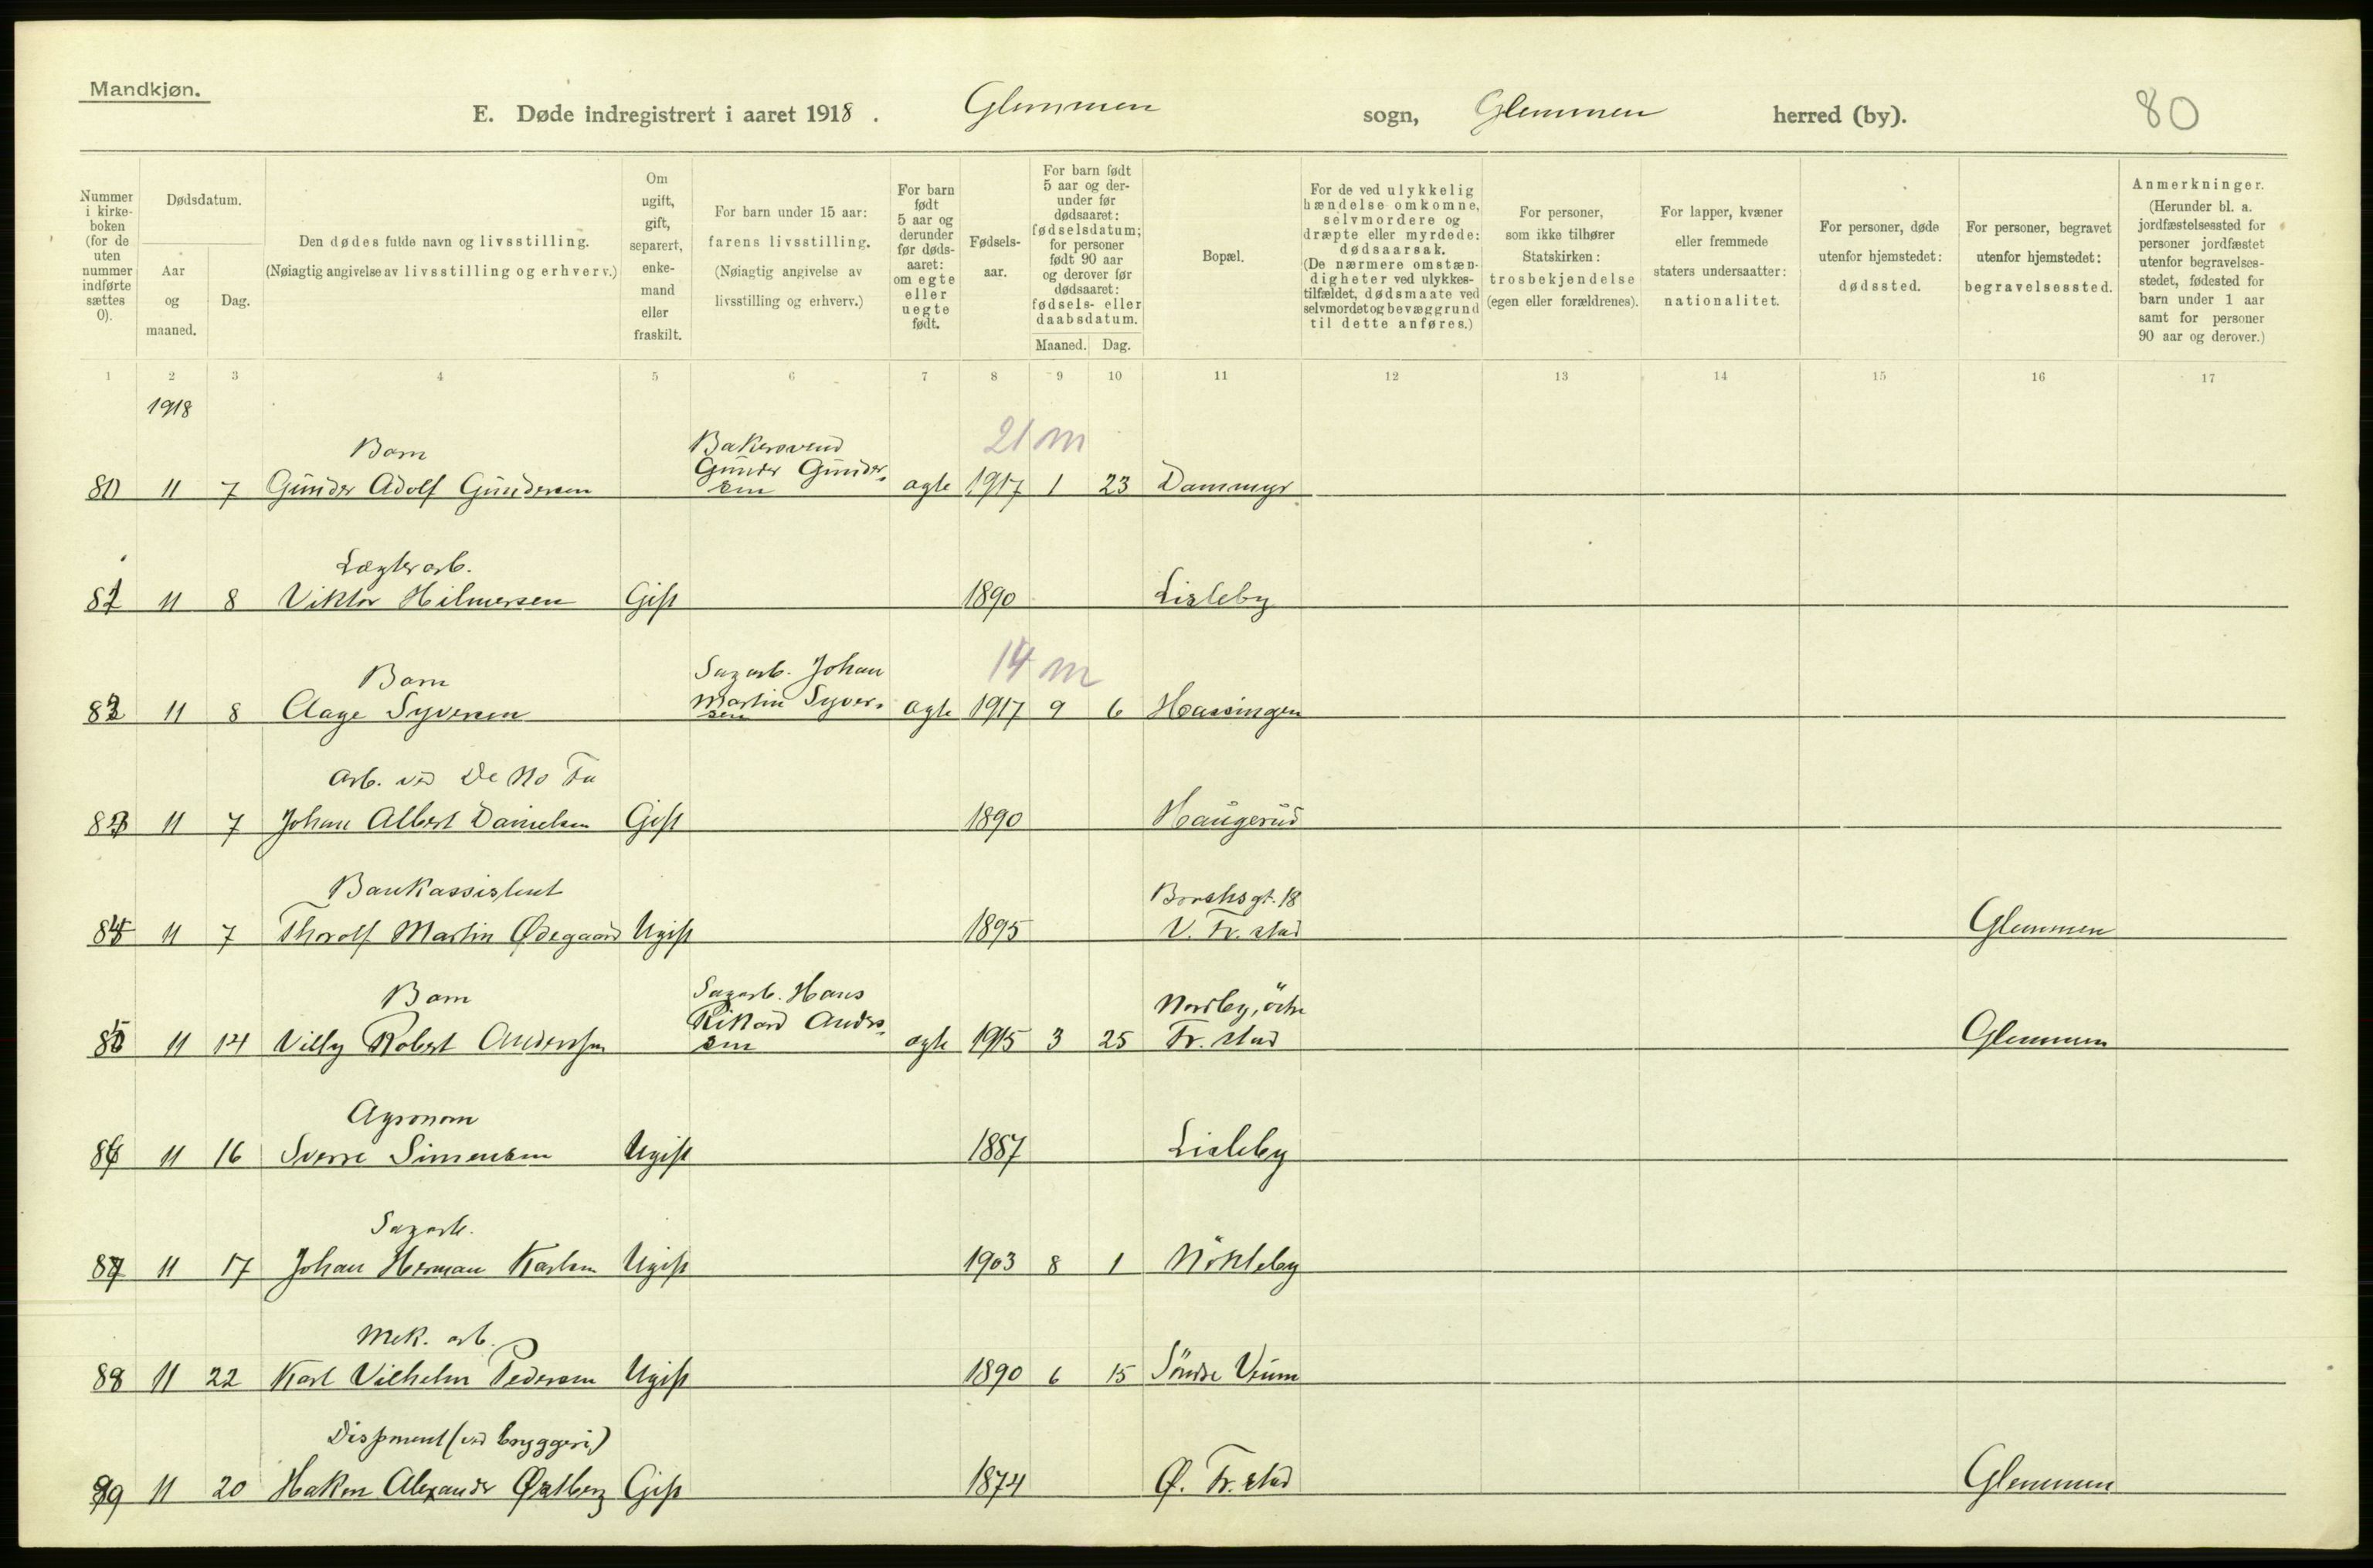 Mandkjøn.
E. Døde indregistrert i aaret 1918. Glemmen sogn, Glemmen herred (by). 80
Nummer i kirke-boken (for de uten nummer indførte sættes 0).
Dødsdatum.
Aar og maaned.
Dag.
Den dødes fulde navn og livsstilling.
(Nøiagtig angivelse av livsstilling og erhverv.)
Om ugift, gift, separert, enke-mand eller fraskilt.
For barn under 15 aar: farens livsstilling. (Nøiagtig angivelse av livsstilling og erhverv.)
For barn født 5 aar og derunder før døds-aaret: om egte eller uegte født.
Fødsels-aar.
For barn født 5 aar og der-under før dødsaaret: fødselsdatum; for personer født 90 aar og derover før dødsaaret: fødsels- eller daabsdatum.
Maaned. Dag.
Bopæl.
For de ved ulykkelig hændelse omkomne, selvmordere og dræpte eller myrdede: dødsaarsak. (De nærmere omstæn-digheter ved ulykkes-tilfældet, dødsmaate ved selvmordet og bevæggrund til dette anføres.)
For personer, som ikke tilhører Statskirken: trosbekjendelse (egen eller forældrenes).
For lapper, kvæner eller fremmede staters undersaatter: nationalitet.
For personer, døde utenfor hjemstedet: dødssted.
For personer, begravet utenfor hjemstedet: begravelsessted.
Anmerkninger. (Herunder bl. a. jordfæstelsessted for personer jordfæstet utenfor begravelses-stedet, fødested for barn under 1 aar samt for personer 90 aar og derover.)
1 2 3 4 5 6 7 8 9 10 11 12 13 14 15 16 17
1918
Barn Bakersvend 21 m
80 11 7 Gunder Adolf Gundersen Gunder Gunder-sen ægte 1917 1 23 Dammyr
Lægterarb.
81 11 8 Viktor Hilmersen Gift 1890 Lisleby
Barn Sagarb. Johan 14 m
82 11 8 Aage Syversen Martin Syver-sen ægte 1917 9 6 Hassingen
Arb. ved De No Fa
83 11 7 Johan Albert Danielsen Gift 1890 Haugerud
Bankassistent Brochsgt. 18
84 11 7 Thorolf Martin Ødegaard Ugift 1895 V. Fr.stad Glemmen
Barn Sagarb. Hans Nordby, östre
85 11 14 Villy Robert Anderssen Rikard Anders-sen ægte 1915 3 25 Fr.stad Glemmen
Agronom
86 11 16 Sverre Simensen Ugift 1887 Lisleby
Sagarb.
87 11 17 Johan Herman Karlsen Ugift 1903 8 1 Nökleby
Mek. arb.
88 11 22 Karl Vilhelm Pedersen Ugift 1890 6 15 Söndre Veum
Disponent (ved bryggeri)
89 11 20 Hakon Alexander Østberg Gift 1874 Ø. Fr.stad Glemmen